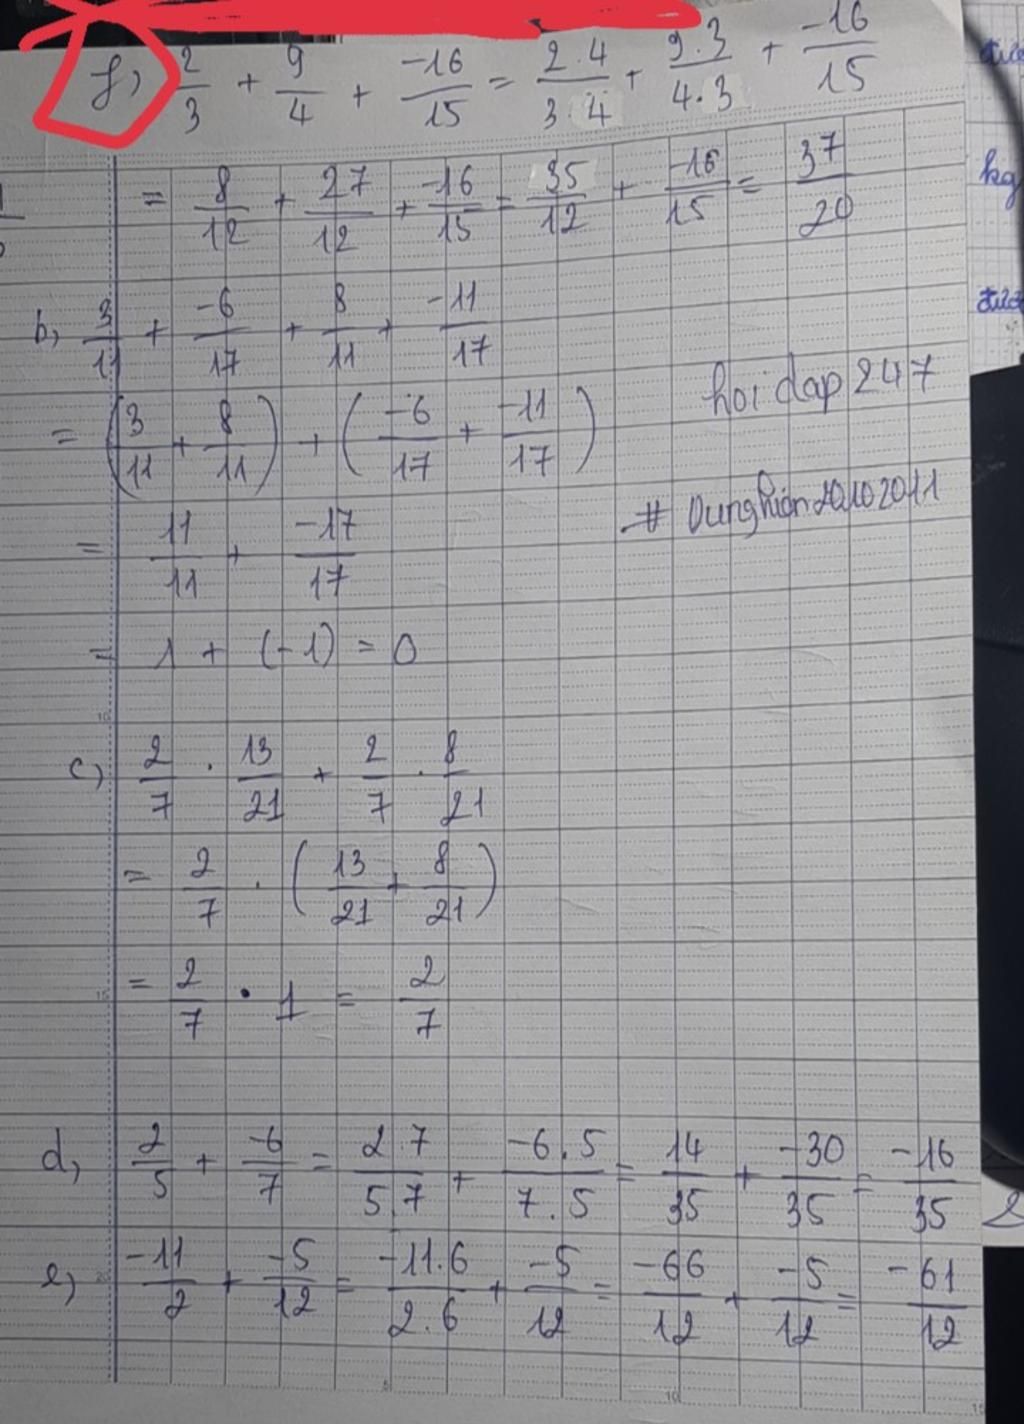 f) 2/3 + 9/4 + -16/15 = 2.4/3.4 + 9.3/4.3 + -16/15
= 8/12 + 27/12 + -16/15 = 35/12 + -16/15 = 37/20
b, 3/11 + -6/17 + 8/11 + -11/17
= (3/11 + 8/11) + (-6/17 + -11/17)
hoi dap 247
= 11/11 + -17/17
= 1 + (-1) = 0
c) 2/7 . 13/21 + 2/7 . 8/21
= 2/7 . (13/21 + 8/21)
= 2/7 . 1 = 2/7
d, 2/5 + -6/7 = 2.7/5.7 + -6.5/7.5 = 14/35 + -30/35 = -16/35
e) -11/2 + -5/12 = -11.6/2.6 + -5/12 = -66/12 + -5/12 = -61/12
kg